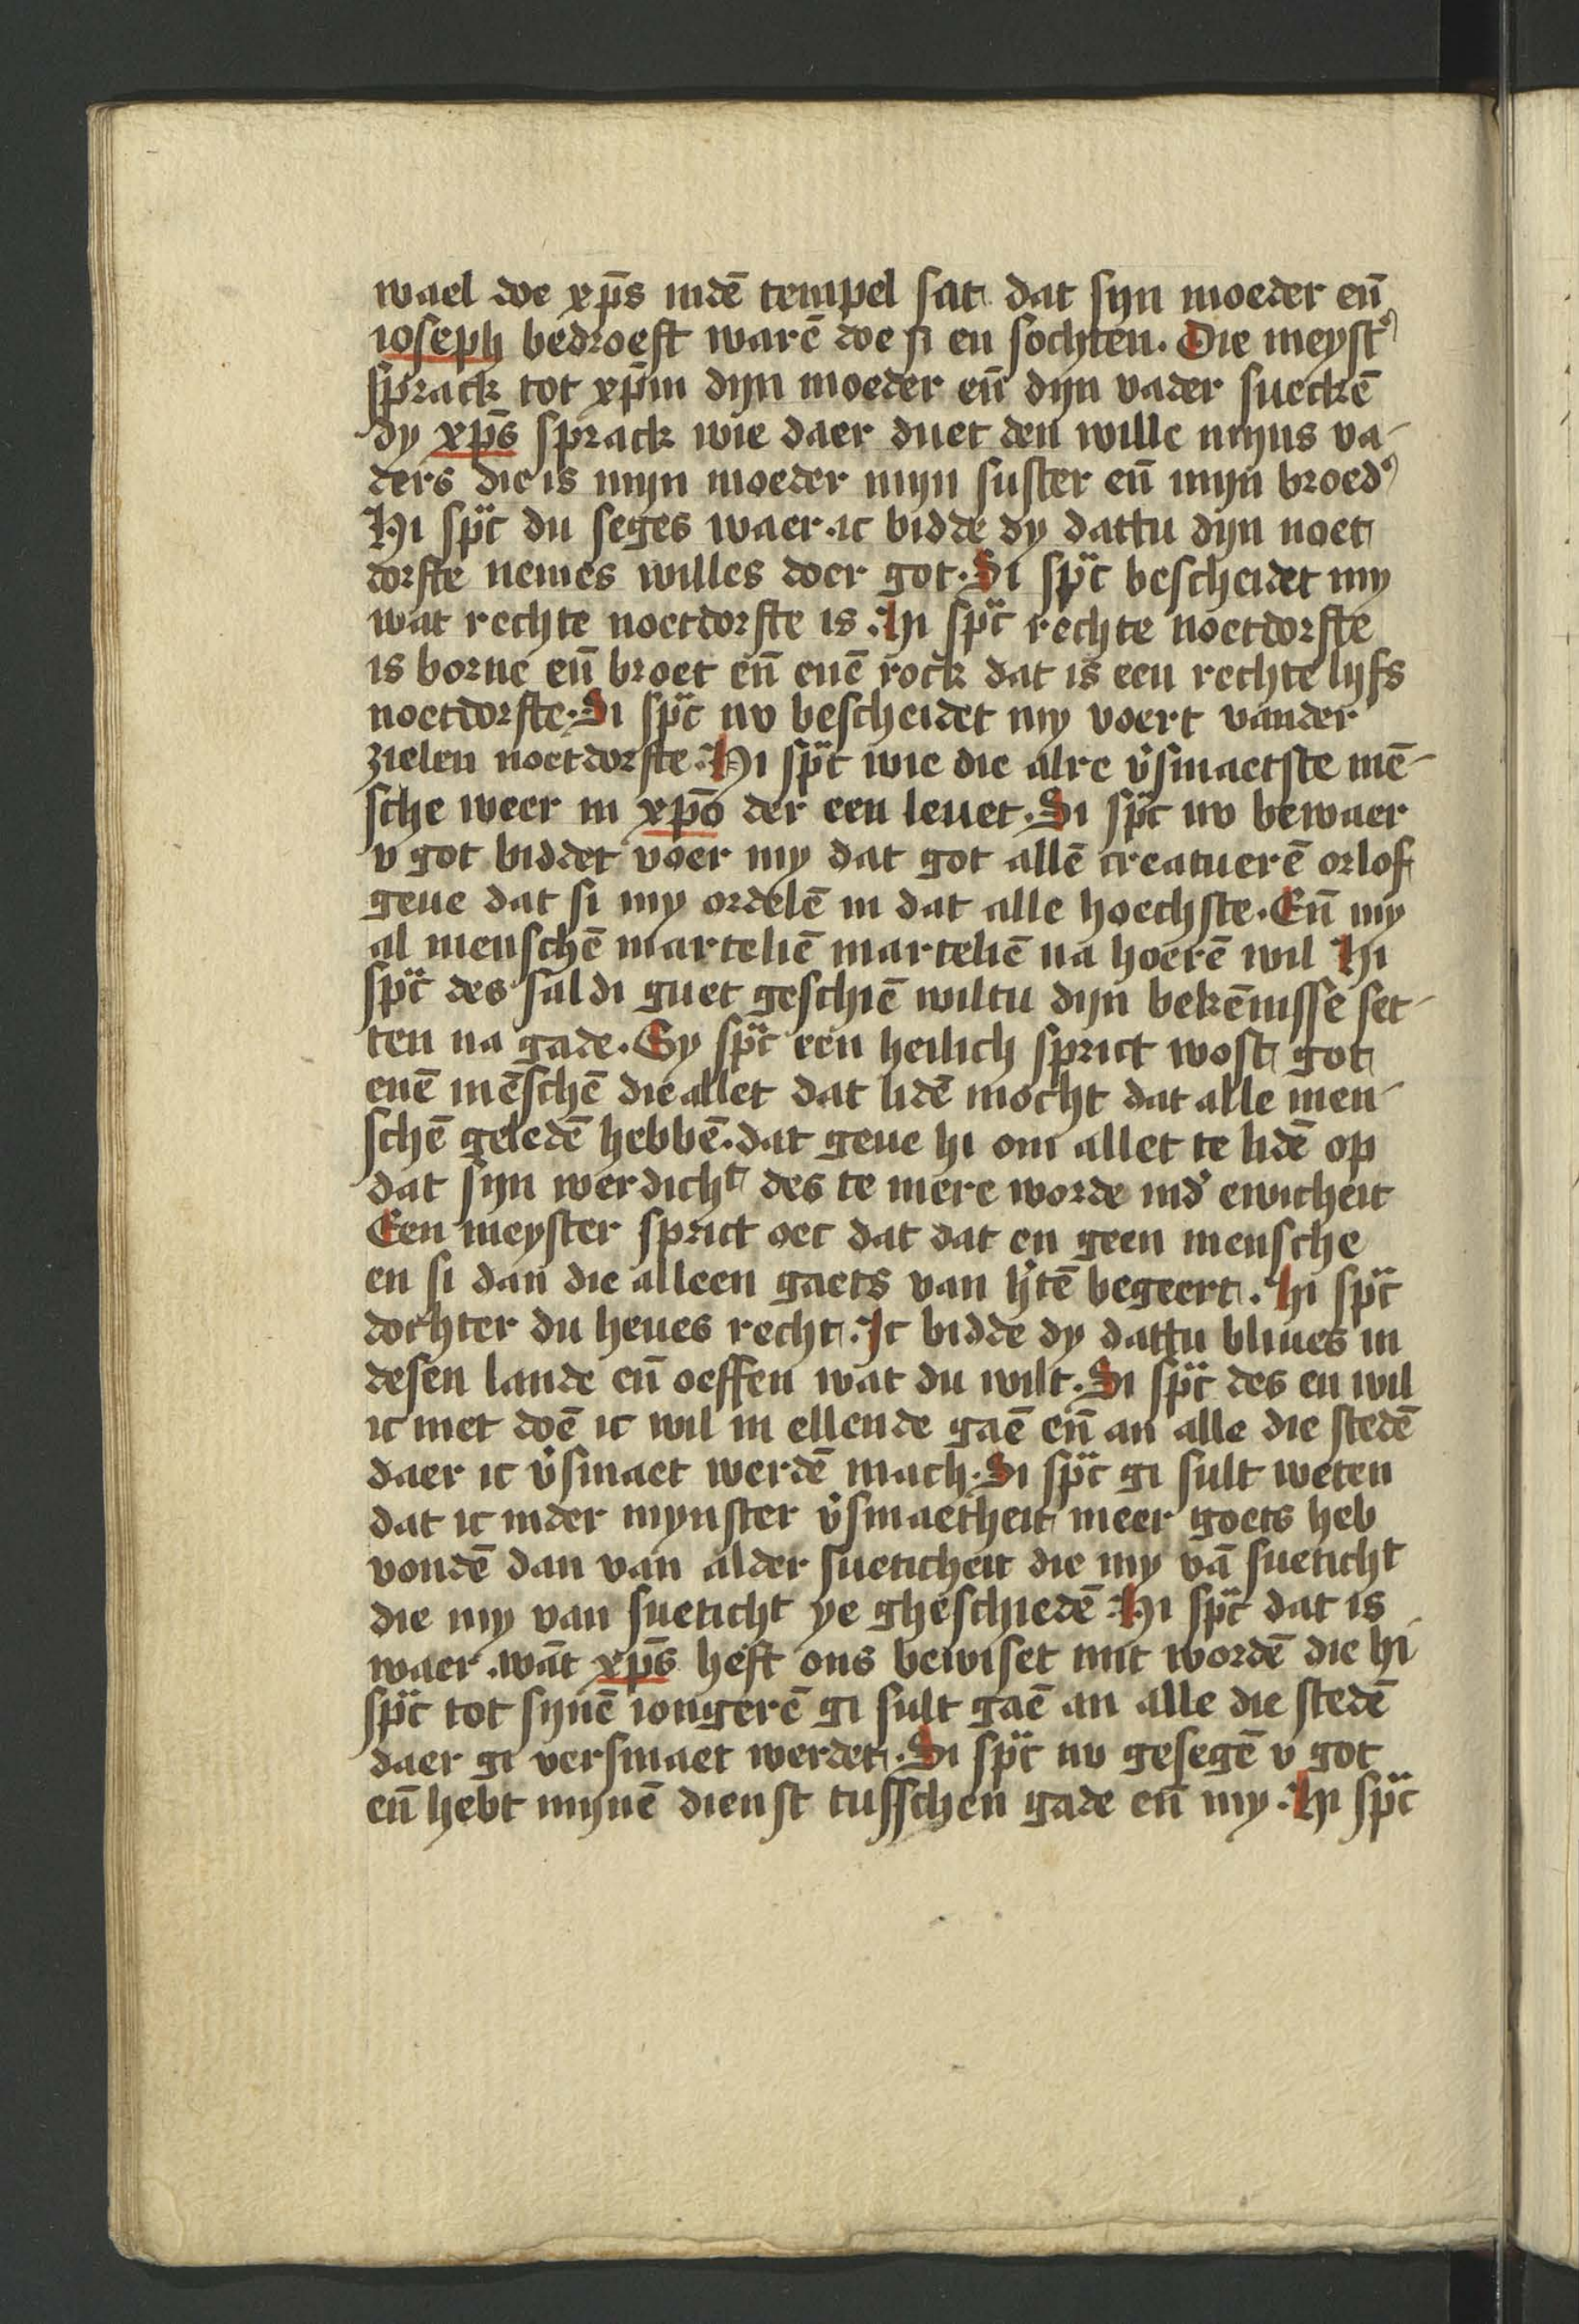 wael doe xp̄s indē tempel sat dat syn moeder eñ
ioseph bedroeft warē doe si en sochten. Die meyst᾽
sprack tot xp̄m dyn moeder eñ dyn vader sueckē
dy xp̄s sprack wie daer duet den wille myns va-
ders die is myn moeder myn suster eñ myn broed᾽
Hi spͣc du seges waer. ic bidde dy dattu dyn noet
dorfte nemes willes doer got. Si spͣc bescheidet my
wat rechte noetdorfte is. Hi spͣc rechte noetdorfte
is borne eñ broet eñ enē rock dat is een rechte lyfs
noetdorfte. Si spͣc nv bescheidet my voert vander
zielen noetdorfte. Hi spͣc wie die alre v᾽smaetste mē-
sche weer in xp̄o der een leuet. Si spͣc nv bewaer
v got biddet voer my dat got allē creatuerē orlof
geue dat si my ordelē in dat alle hoechste. Eñ my
al menschē marteliē marteliē na hoerē wil Hi
spͣc des sal di guet geschiē wiltu dyn bekēnisse set-
ten na gade. Sy spͣc een heilich sprict wost got
enē mēschē die allet dat lidē mocht dat alle men-
schē geledē hebbē. dat geue hi om allet te lidē op
dat syn werdichͭ des te mere worde ind᾽ ewicheit
Een meyster sprict oec dat dat en geen mensche
en si dan die alleen gaets van h᾽tē begeert. Hi spͣc
dochter du heues recht. Ic bidde dy dattu bliues in
desen lande eñ oeffen wat du wilt. Si spͣc des en wil
ic niet doē ic wil in ellende gaē eñ an alle die stedē
daer ic v᾽smaet werdē mach. Si spͣc gi sult weten
dat ic inder mynster v᾽smaetheit meer goets heb
vondē dan van alder sueticheit die my vā sueticht
die my van sueticht ye gheschiedē. Hi spͣc dat is
waer. wāt xp̄s heft ons bewiset mit wordē die hi
spͣc tot synē iongerē gi sult gaē an alle die stedē
daer gi versmaet werdet. Si spͣc nv gesegē v got
eñ hebt mynē dienst tusschen gade eñ my. Hi spͣc